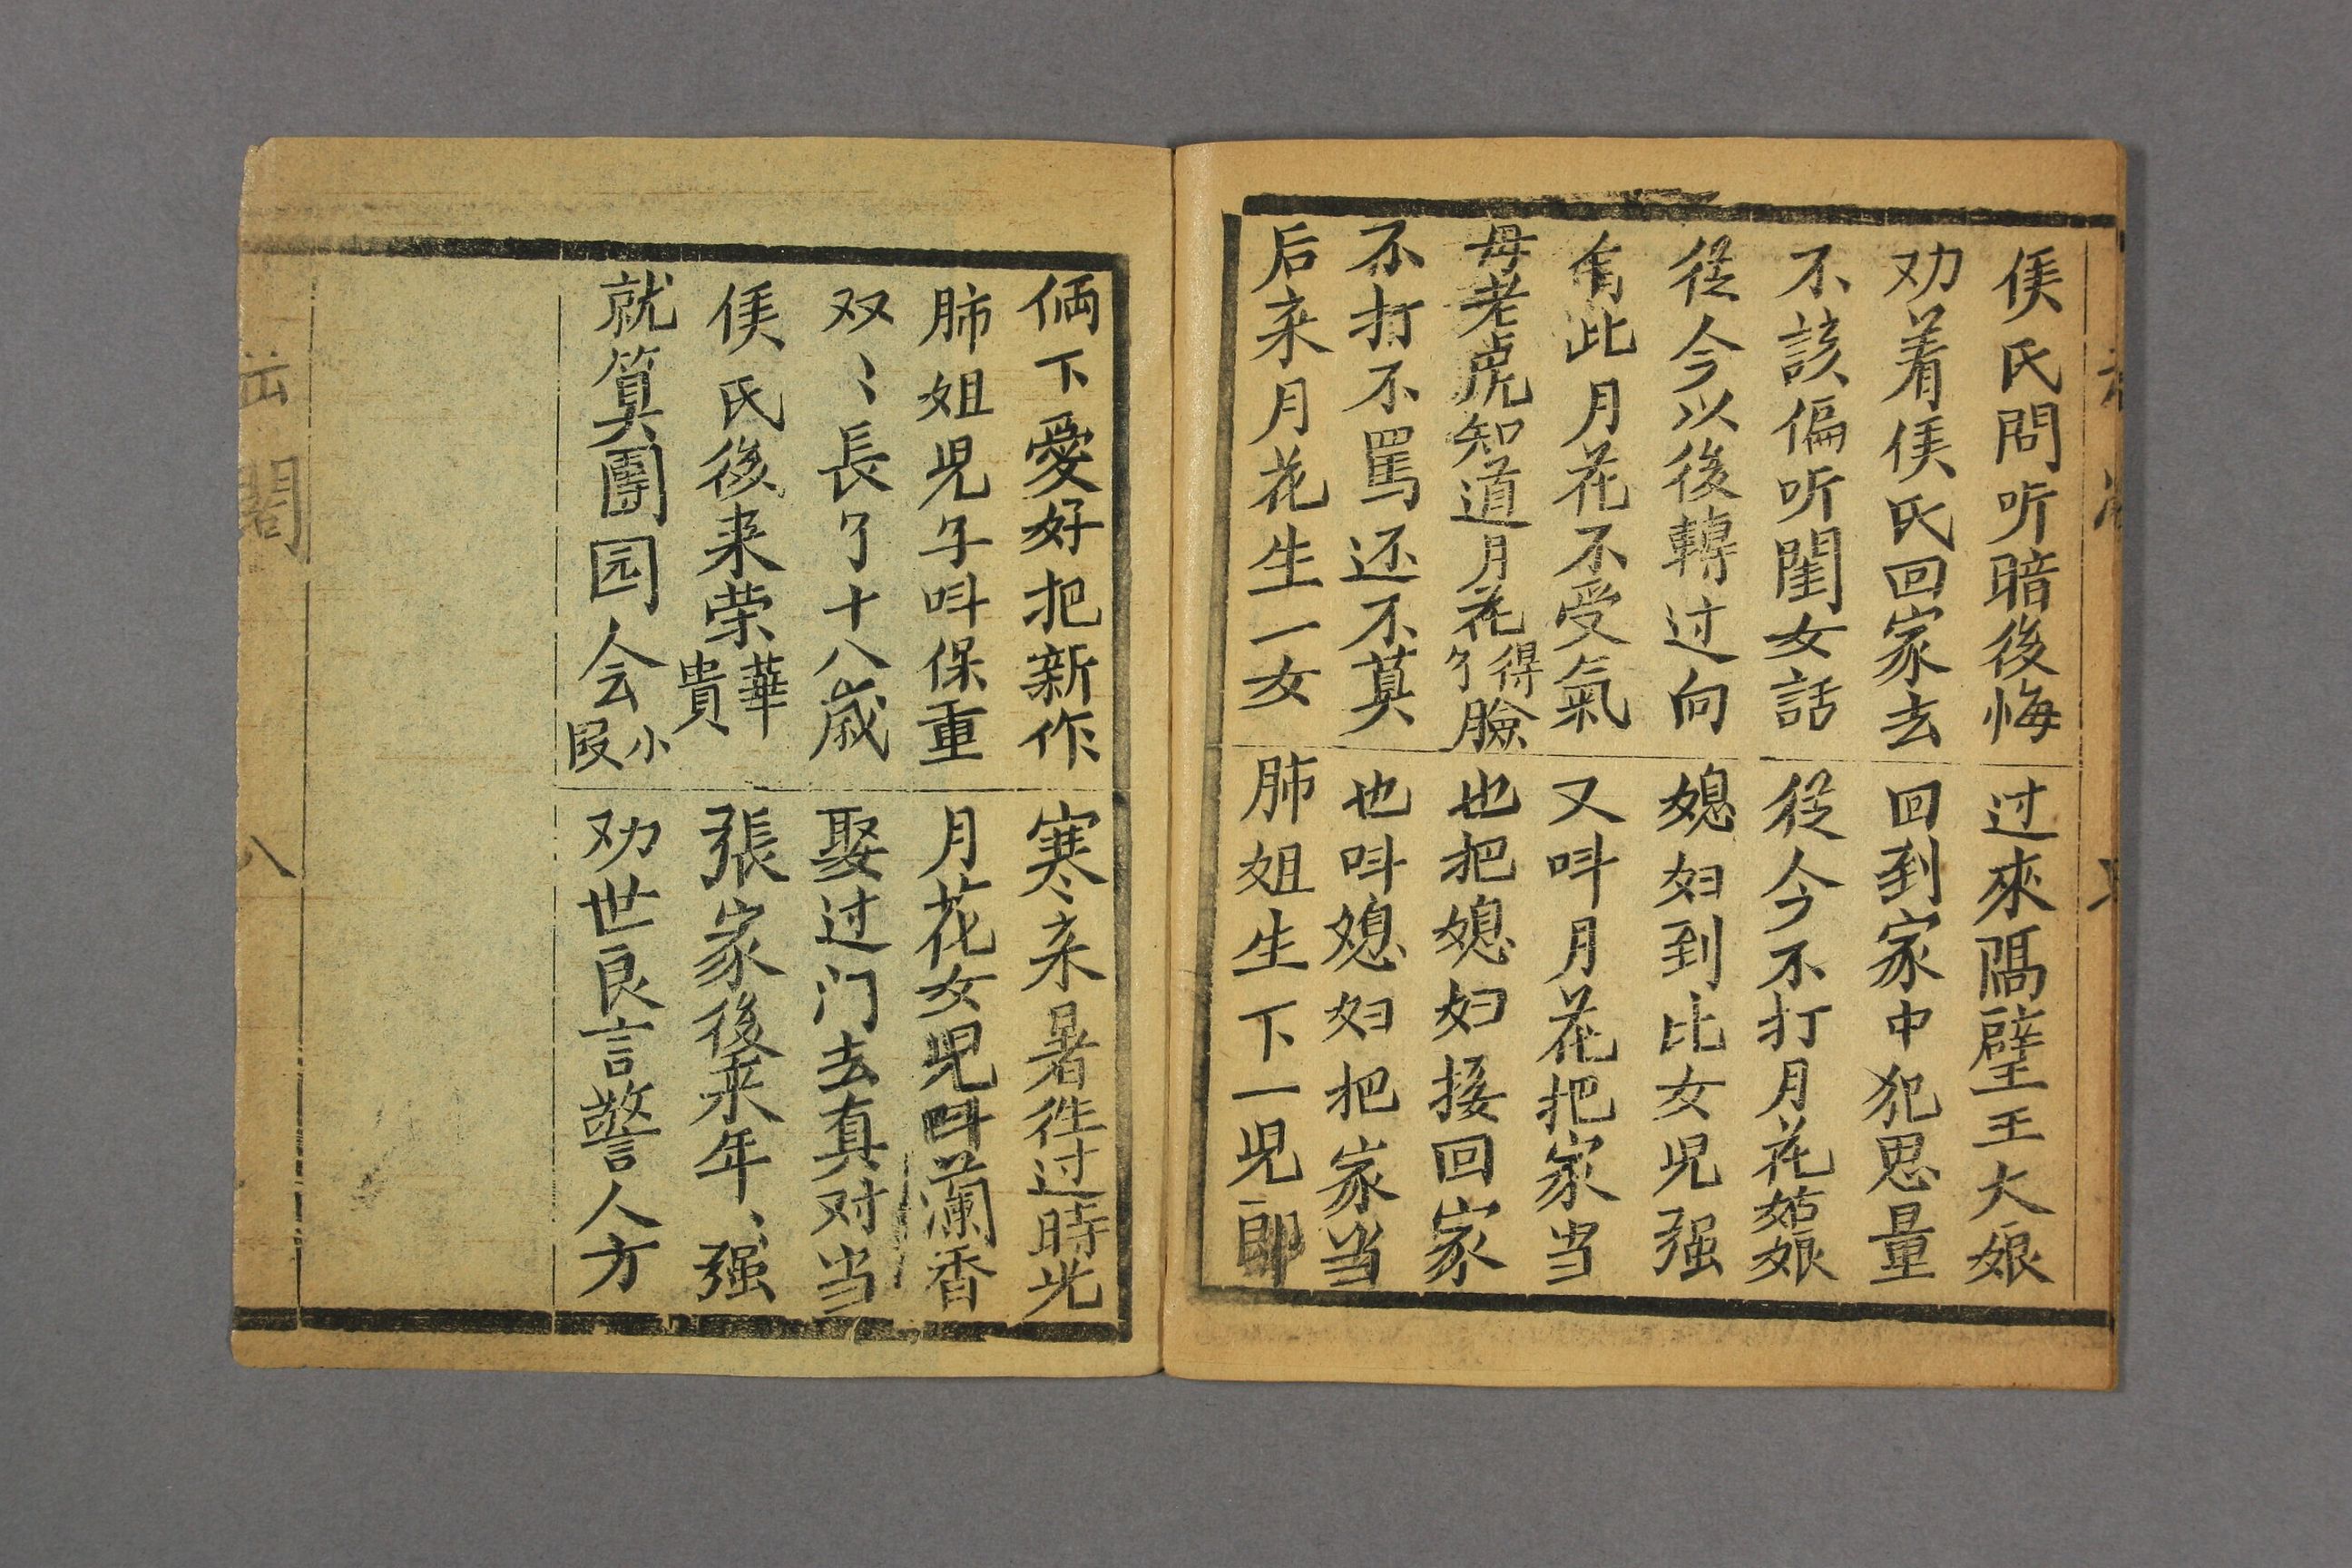 侯氏問听暗後悔 过來隔壁王大娘
劝着侯氏回家去 回到家中犯思量
不該偏听閨女話 從今不打月花娘
從今以後轉过向 媳妇到比女児强
有此月花不受氣 又呌月花把家当
母老虎知道月花得了臉 也把媳妇接回家
不打不罵还不莫 也呌媳妇把家当
后来月花生一女 肺姐生下一児郎
俩下愛好把新作 寒来暑徃过時光
肺姐児子呌保重 月花女児呌蘭香
双〻長了十八歲 娶过门去真对当
侯氏後来荣華貴 張家後来年〻强
就算團园会小叚 劝世良言警人方
八